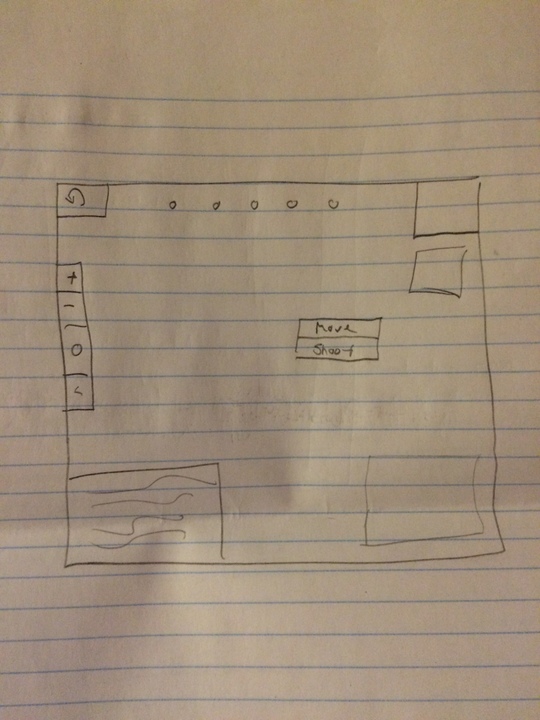 +
-
0
Move
Shoot